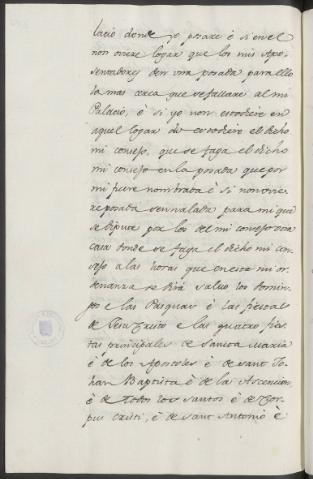 lacio donde yo posare è si en el
non oviere logar que los mis Apo-
sentadores den una posada para ello
la mas cerca que se fallare al mi
Palacio, è si yo non estodiere en
aquel logar do estodiere el dicho
mi consejo, que se faga el dicho
mi consejo en la posada que por
mi fuere nombrada è si non ovie-
re posada sennalada para mi que
se diputa por los del mi consejo una
casa donde se faga el dicho mi con-
sejo a las horas que en esta mi or-
denanza se dirà salvo los domin-
gos e las Pasquas è las fiestas
de Jesu Cristo e las quatro fies-
tas principales de Sancta Maria
è de los Apostoles è de sant Jo-
han Baptista è de la Ascencion
è de todos los Santos è de Cor-
pus Cristi, è de Sant Antonio è